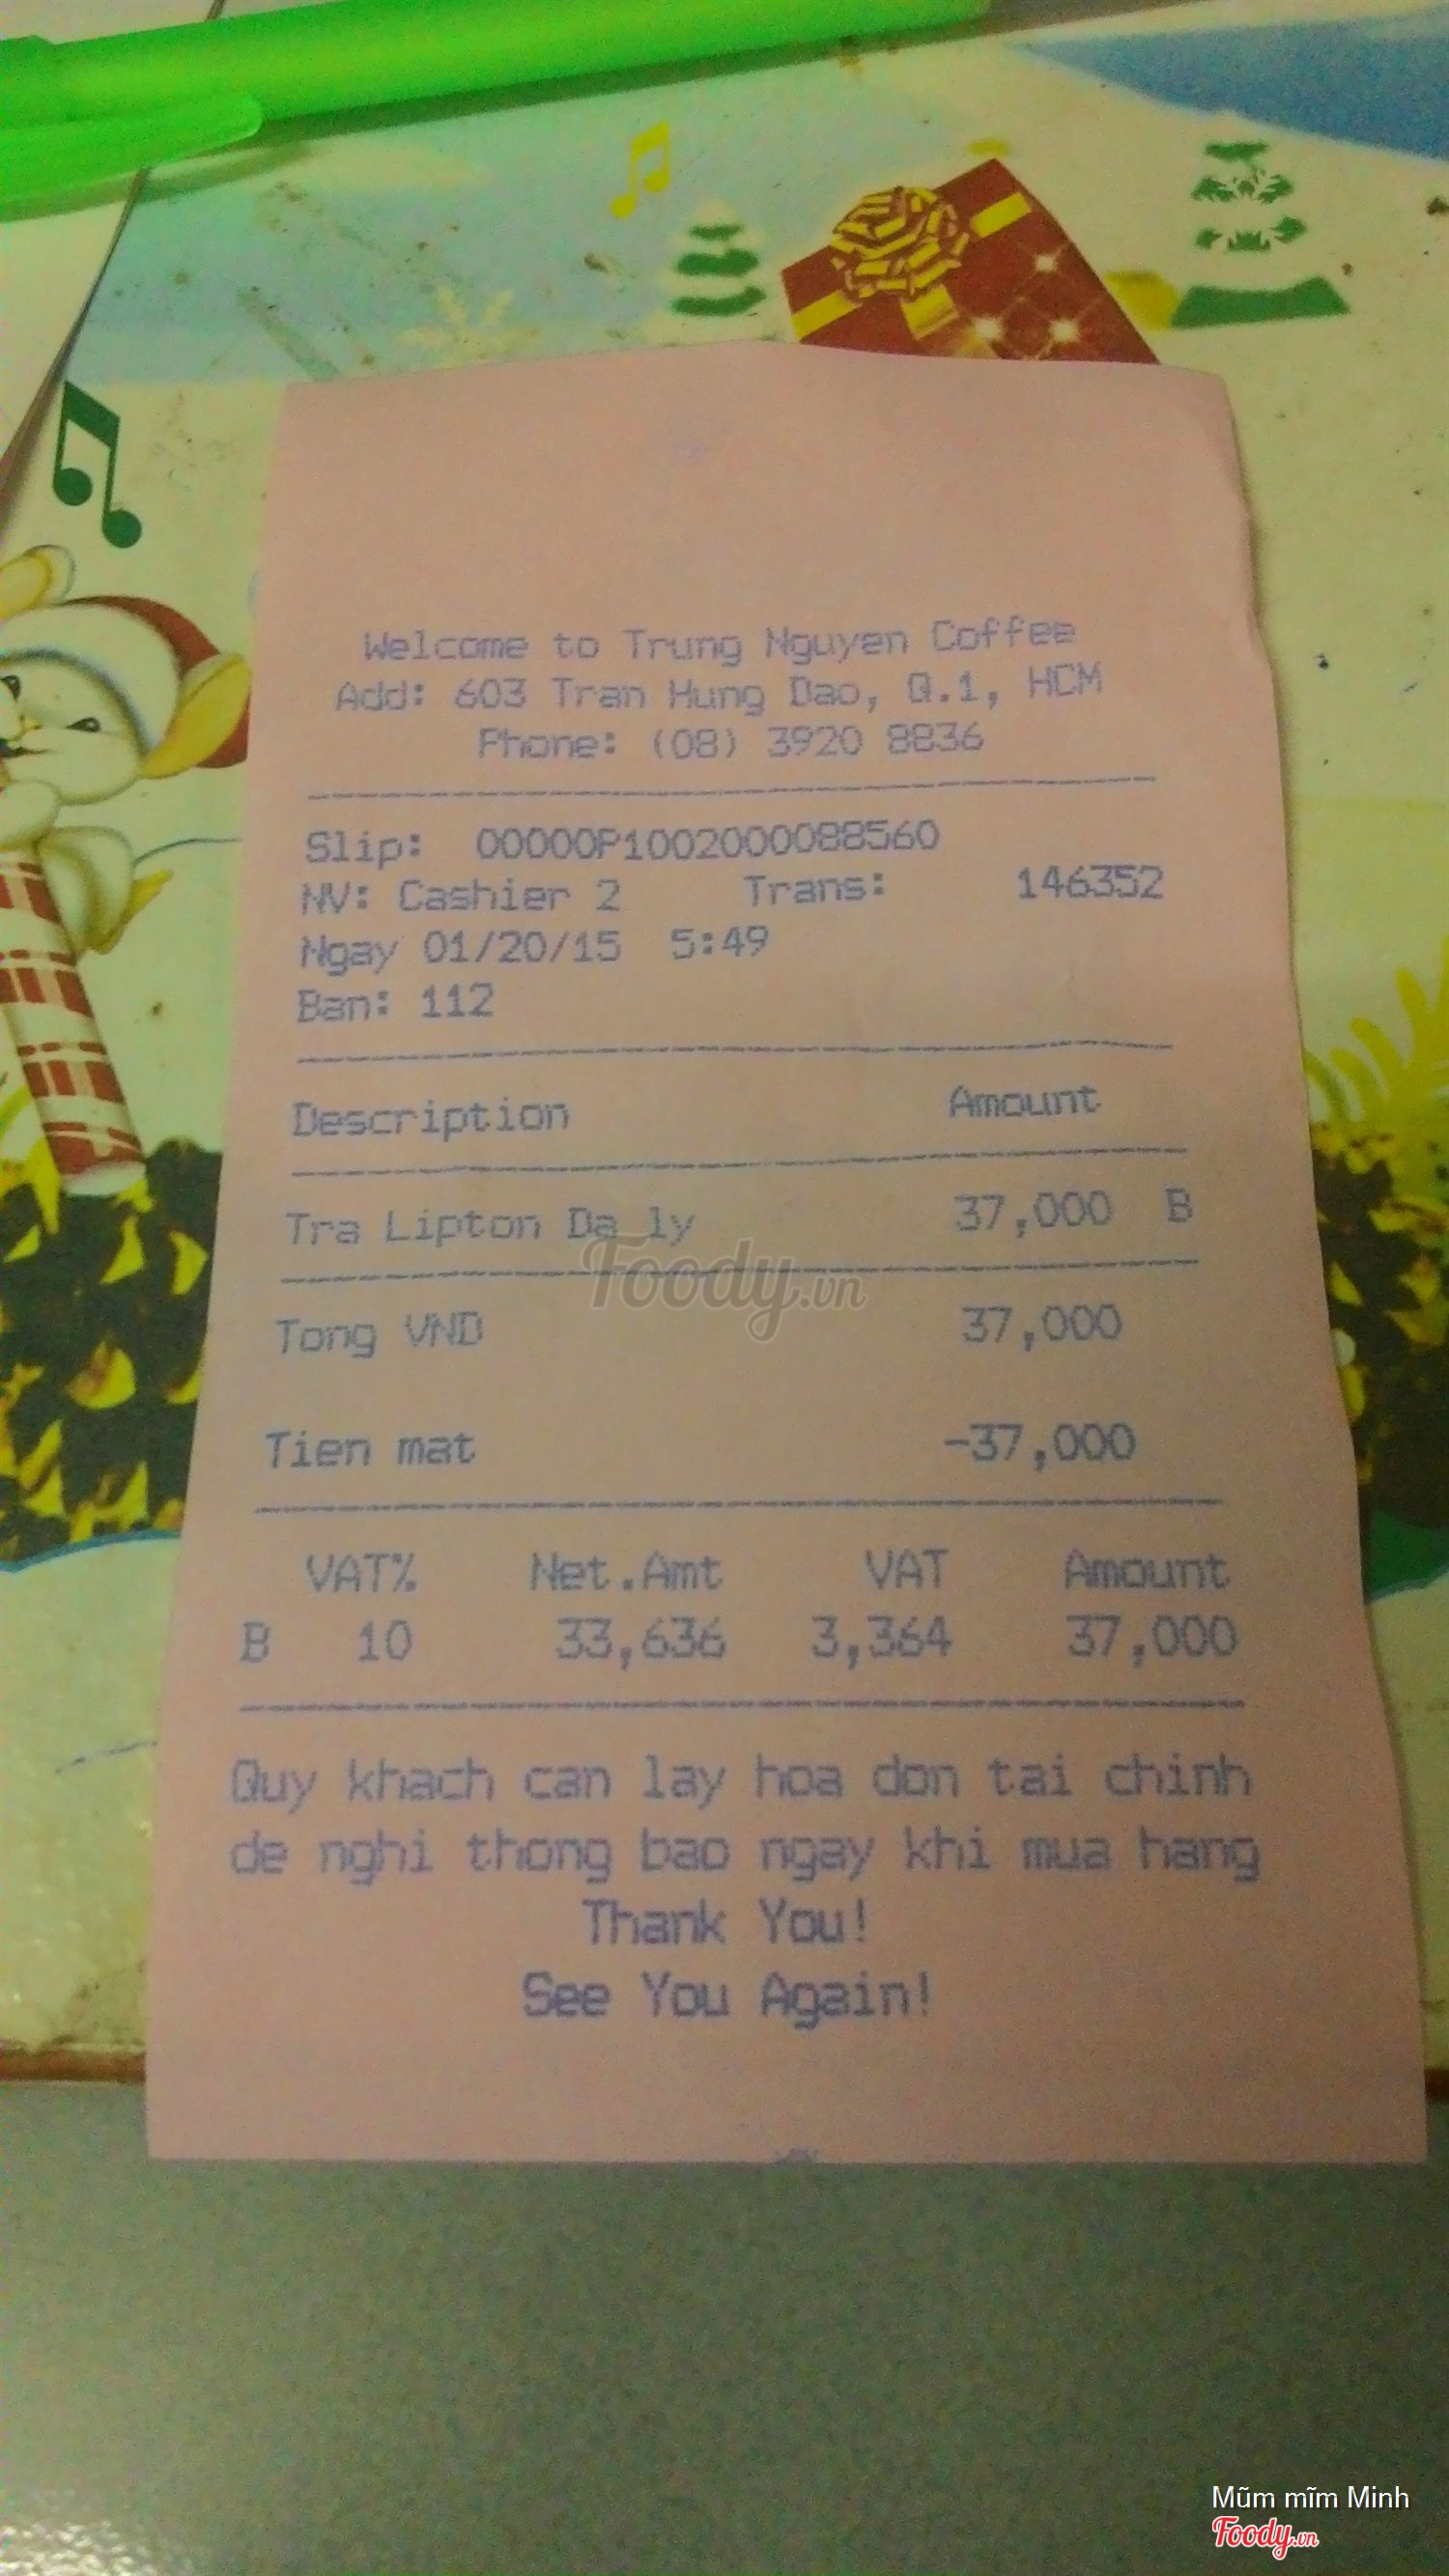 Welcome to Trung Nguyen Coffee
Add: 603 Tran Hung Dao, Q.1, HCM
Phone: (08) 3920 8836
Slip: 00000P1002000088560
NV: Cashier 2 Trans: 146352
Ngay 01/20/15 5:49
Ban: 112
Description Amount
Tra Lipton Da ly 37,000 B
Foody.vn
Tong VND 37,000
Tien mat -37,000
VAT% Net.Amt VAT Amount
B 10 33,636 3,364 37,000
Quy khach can lay hoa don tai chinh
de nghi thong bao ngay khi mua hang
Thank You!
See You Again!
Mũm mĩm Minh
Foody.vn